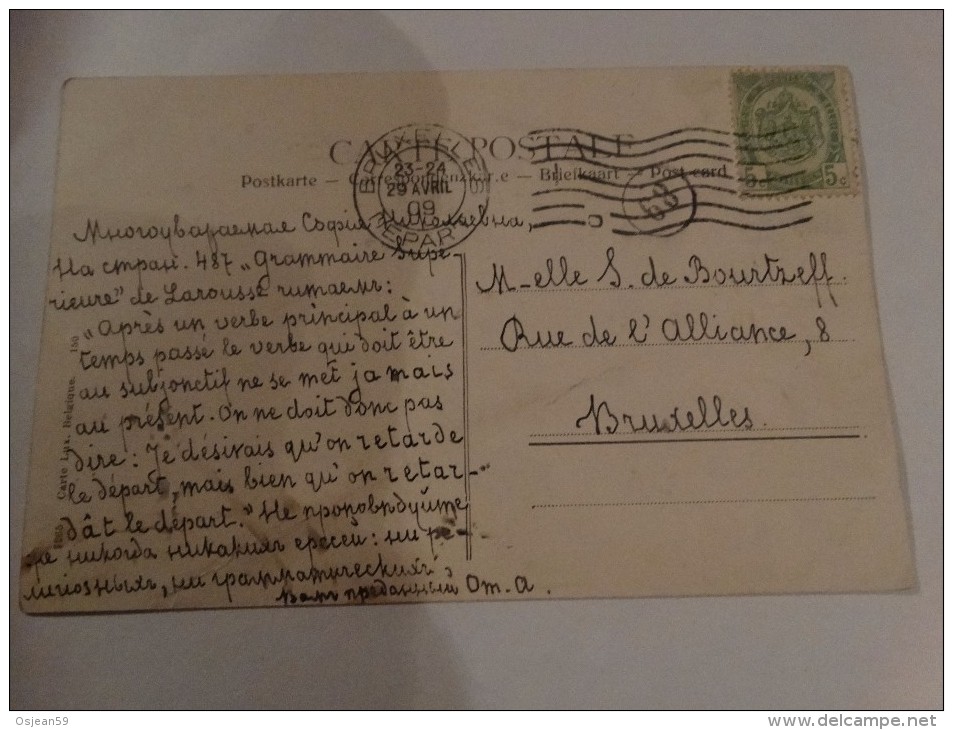 CARTE POSTALE
Postkarte — Correspondenzkarte — Briefkaart — Post card
BRUXELLES
23-24
29 AVRIL
09
DEPART
68
5c 5c
Многоуважаемая Софія Николаевна,
На стран. 487 „Grammaire Supé-
rieure" de Larousse читаемъ:
„Après un verbe principal à un
temps passé le verbe qui doit être
au subjonctif ne se met jamais
au présent. On ne doit donc pas
dire: Je désirais qu'on retarde
le départ, mais bien qu'on retar-
dât le départ." Не проповѣдуйте
же никогда никакихъ ересей: ни ре-
лигіозныхъ, ни грамматическихъ
Вамъ преданный От. А.
M-elle S. de Bourtzeff.
Rue de l'Alliance, 8
Bruxelles.
Carte Lux, Belgique. 150
Osjean59
www.delcampe.net